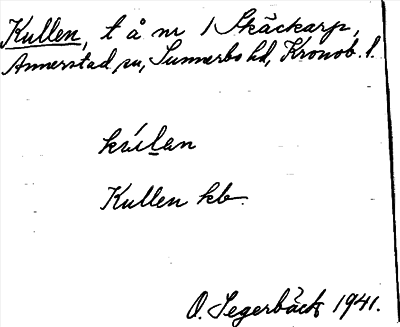 Kullen, t å nr 1 Skäckarp,
Annerstad sn, Sunnerbo hd, Kronob. l.
kúlan
Kullen kb.
O. Segerbäck 1941.